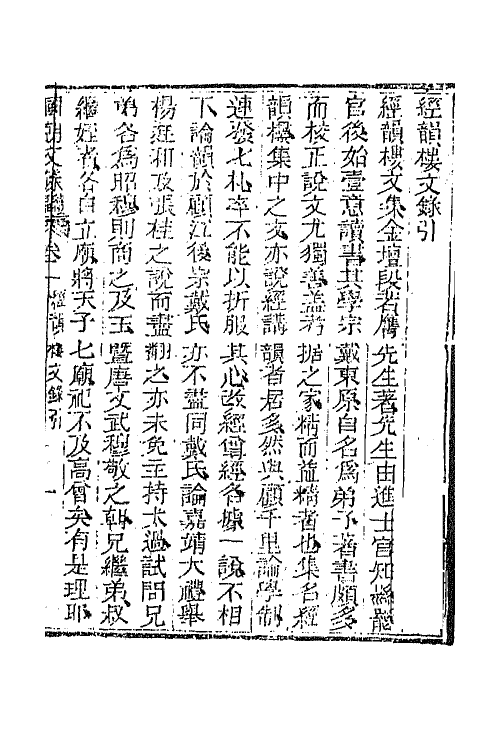 經韻樓文錄引
經韻樓文集金壇段若膺先生著先生由進士官知縣罷
官後始壹意讀書其學宗戴東原自名爲弟子著書頗多
而校正說文尤獨善蓋考據之家精而益精者也集名經
韻樓集中之文亦說經講韻者居多然與顧千里論學制
連發七札率不能以折服其心改經曾經各據一說不相
下論韻於顧江後宗戴氏亦不盡同戴氏論嘉靖大禮舉
楊廷和及張桂之說而盡翻之亦未免主持太過試問兄
弟各爲昭穆則商之及王暨唐文武穆敬之朝兄繼弟叔
繼姪者各自立廟將天子七廟祀不及高曾矣有是理耶
國朝文錄 卷一 經韻樓文錄引 一